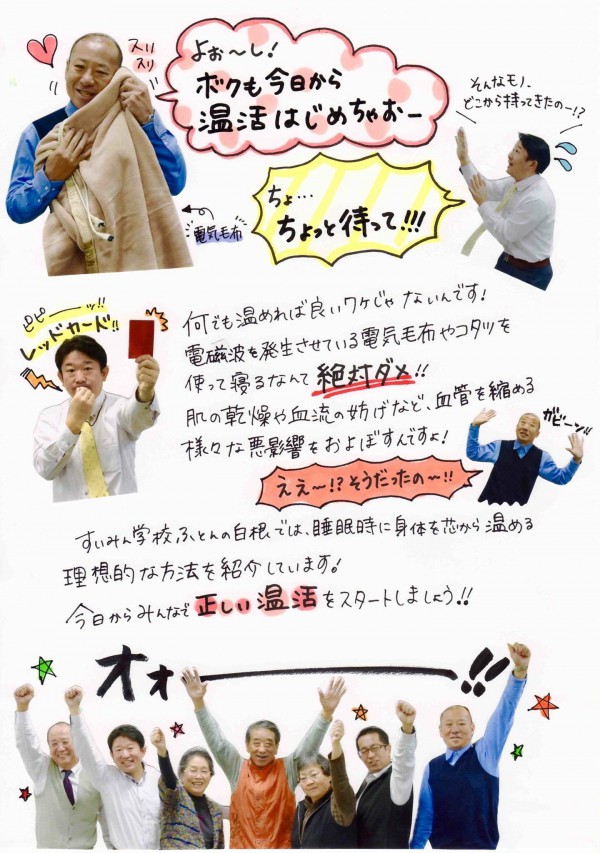 スリスリ
よぉ〜し！
ボクも今日から
温活はじめちゃおー
そんなモノ、
どこから持ってきたのー!?
ちょ…
ちょっと待って!!!
電気毛布
ピピーーッ!!
レッドカード!!
何でも温めれば良いワケじゃないんです！
電磁波を発生させている電気毛布やコタツを
使って寝るなんて絶対ダメ!!
肌の乾燥や血流の妨げなど、血管を縮める
様々な悪影響をおよぼすんですよ！
ガビーン!!
ええ〜!?そうだったの〜!!
すいみん学校ふとんの白根では、睡眠時に身体を芯から温める
理想的な方法を紹介しています！
今日からみんなで正しい温活をスタートしましょう!!
オォーーー!!